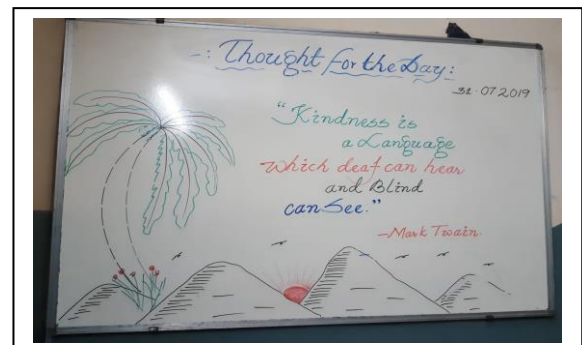 -: Thought for the Day:
31.07.2019
"Kindness is
a Language
which deaf can hear
and Blind
can See."
-Mark Twain.